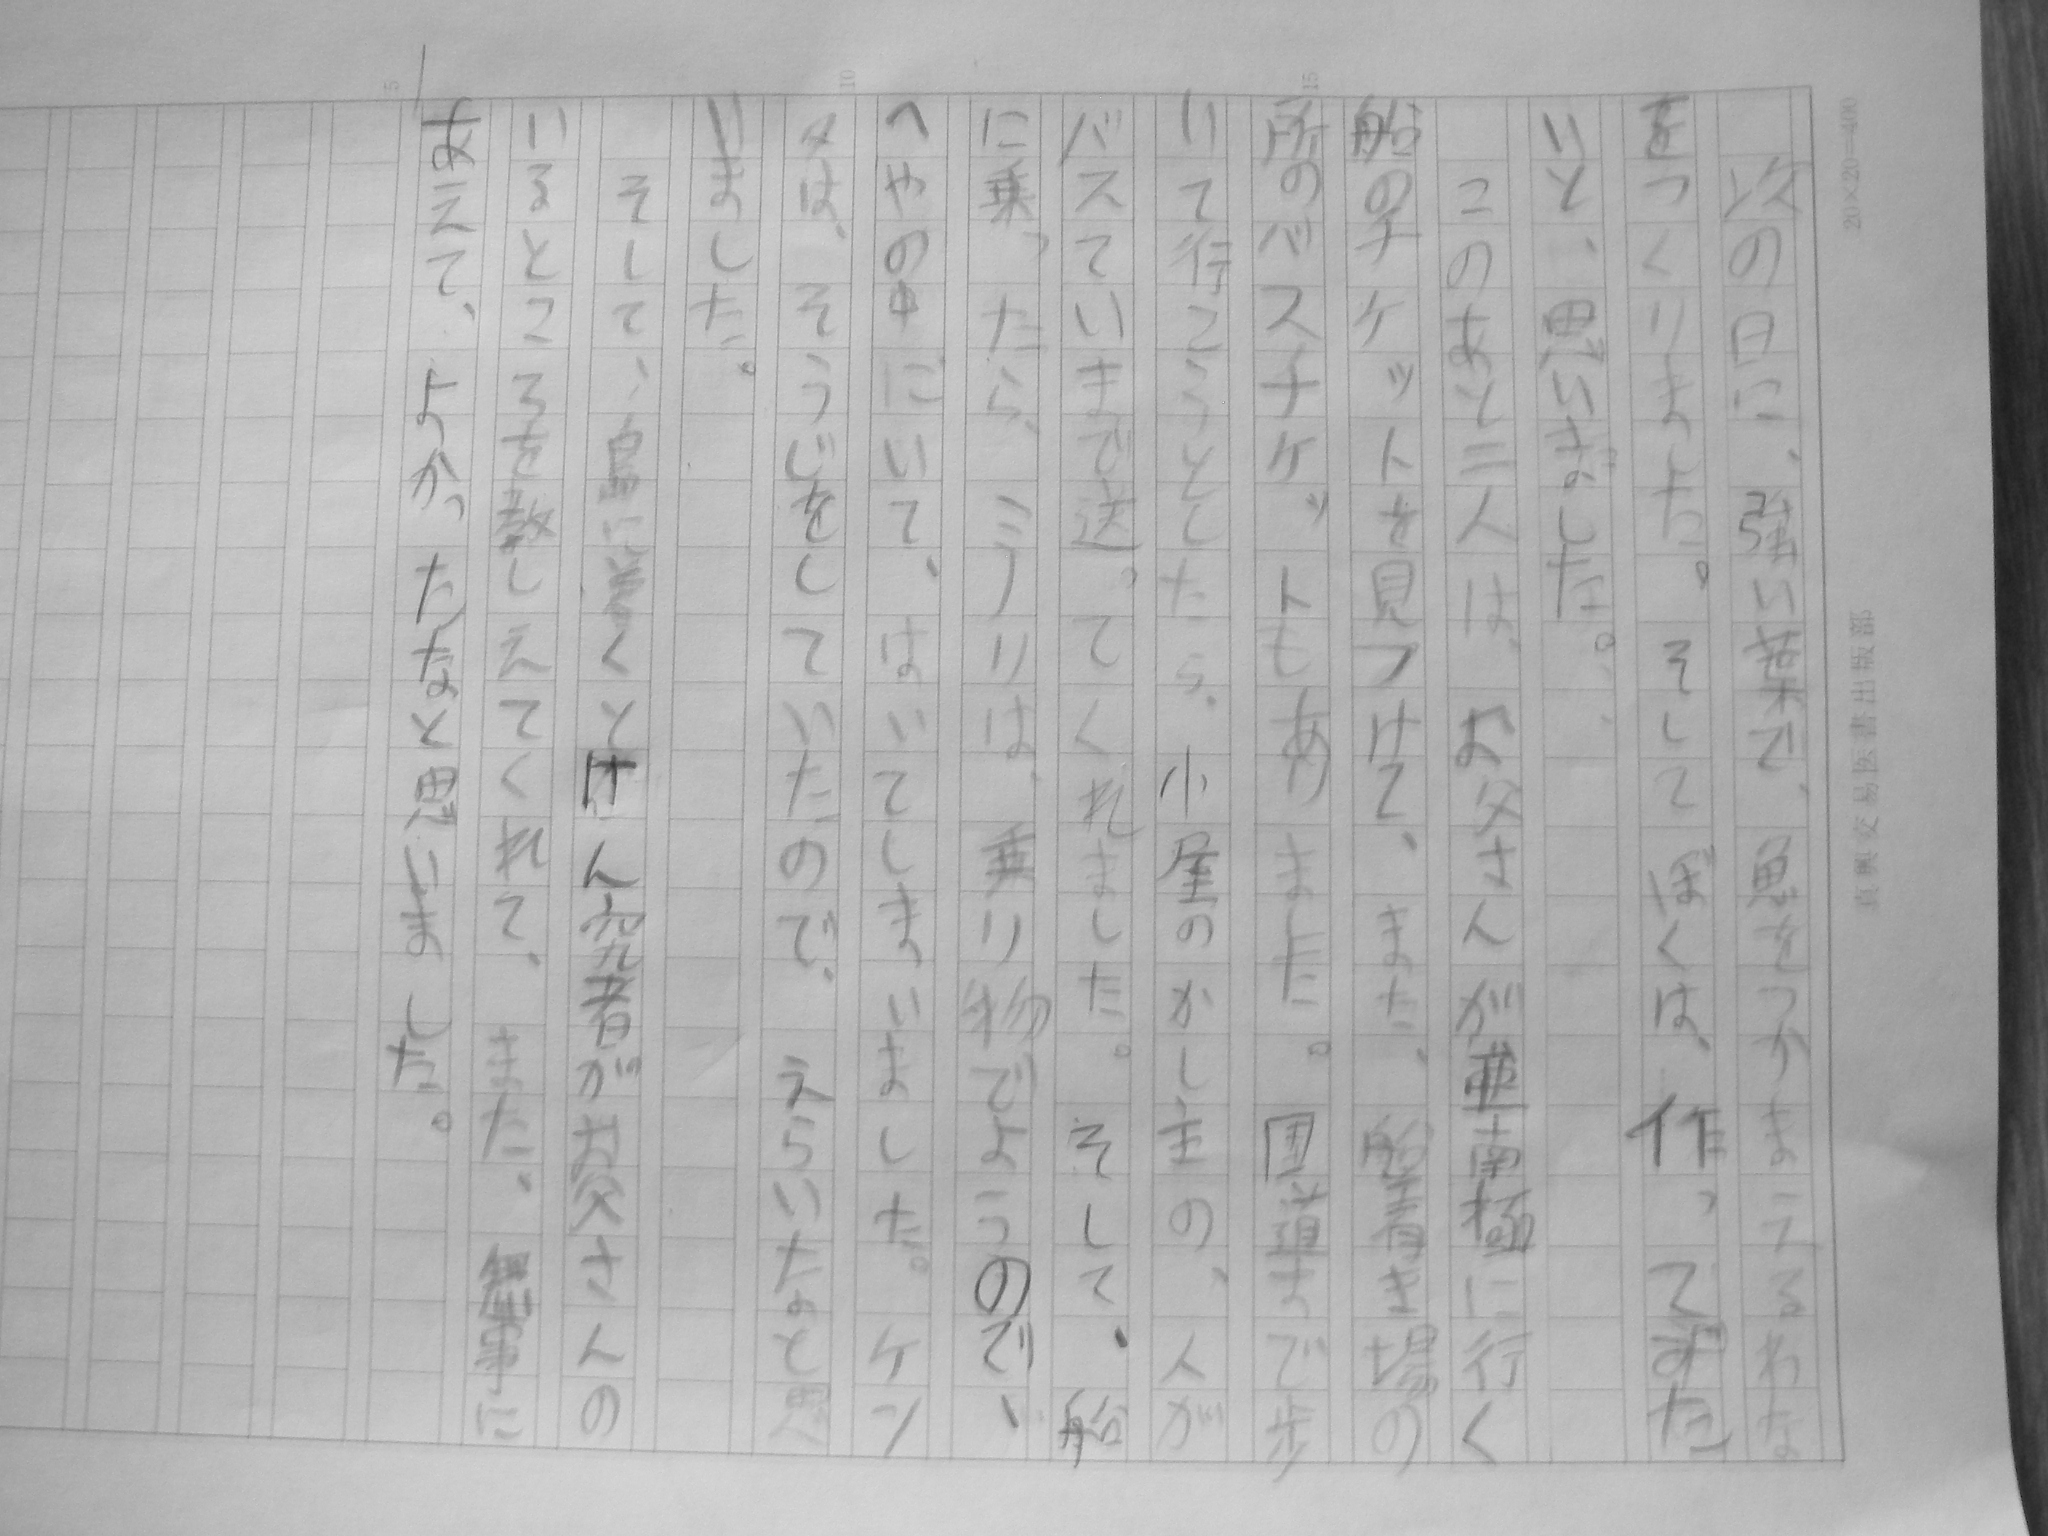 次の日に、強い葉で、魚をつかまえるわな
をつくりました。そしてぼくは、作ってみた
いと、思いました。
このあと三人は、お父さんが亜南極に行く
船のチケットを見つけて、また、船着き場の
所のバスチケットもありました。国道まで歩
いて行こうとしたら、小屋のかし主の、人が
バスていまで送ってくれました。そして、船
に乗ったら、ミラリは、乗り物でようので、
へやの中にいて、はいてしまいました。ケン
タは、そうじをしていたので、えらいなと思
いました。
そして、島に着くとけん究者がお父さんの
いるところを教しえてくれて、また、無事に
あえて、よかったなと思いました。
20×20=400
真興交易医書出版部
5
10
15